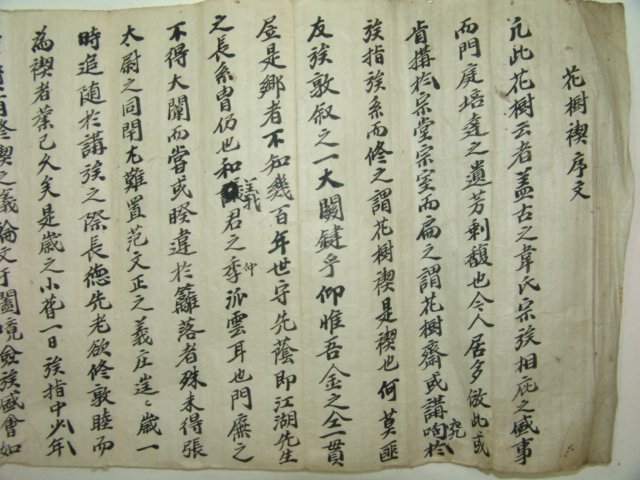 花樹禊序文
凢此花樹云者盖古之韋氏宗族相庇之盛事
而門庭培達之遺芳剩馥也今人居多倣此或
肯搆於宗堂宗室而扁之謂花樹齋或講究於
族指族系而修之謂花樹禊是禊也何莫匪
友族敦叙之一大關鍵乎仰惟吾金之仝一貫
居是鄉者不知幾百年世守先蔭即江湖先生
之長系曺仍也和義君之季仲派雲耳也門廉之
不得大闡而嘗或睽違於籬落者殊未得張
太尉之同閈尤難置范文正之義庄崖〻歲一
時追随於講族之際長德先老欲修敦睦而
為禊者蓄已久矣是歲之小春一日族指中少年
修禊之義論文于闔境僉族盛會如